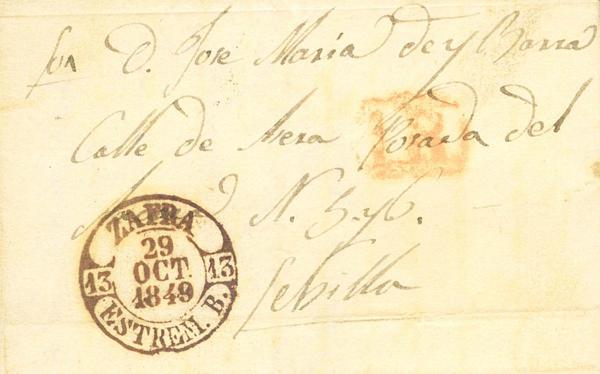 Sor D. Jose Maria de y Barra
Calle de Mesa Posada del
N. 5 y 6.
Sebilla
ZAFRA
29
OCT.
1849
13 13
ESTREM. B.